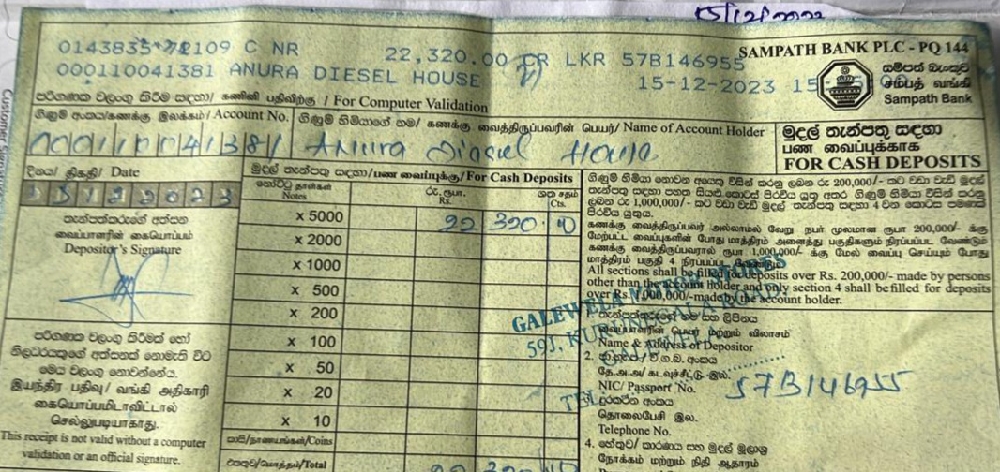 15/12/2022
0143835 72109 C NR 22,320.00 CR LKR 57B146955
000110041381 ANURA DIESEL HOUSE 15-12-2023
SAMPATH BANK PLC - PQ 144
සම්පත් බැංකුව
சம்பத் வங்கி
Sampath Bank
පරිගණක වලංගු කිරීම සඳහා/ கணினி பதிவிற்கு / For Computer Validation
ගිණුම් අංකය/கணக்கு இலக்கம்/ Account No.
ගිණුම් හිමියාගේ නම/ கணக்கு வைத்திருப்பவரின் பெயர்/ Name of Account Holder
000110041381 Anura Diesel House
මුදල් තැන්පතු සඳහා
பண வைப்புக்காக
FOR CASH DEPOSITS
දිනය/ திகதி/ Date
තැන්පත්කරුගේ අත්සන
வைப்பாளரின் கையொப்பம்
Depositor's Signature
පරිගණක වලංගු කිරීමක් හෝ
නිලධරයකුගේ අත්සනක් නොමැති විට
මෙය වලංගු නොවන්නේය.
இயந்திர பதிவு/ வங்கி அதிகாரி
கையொப்பமிடாவிட்டால்
செல்லுபடியாகாது.
This receipt is not valid without a computer
validation or an official signature.
මුදල් තැන්පතු සඳහා/பண வைப்புக்காக/ For Cash Deposits
නෝට්ටු தாள்கள் රු. ரூபா. ශත சதம்
Notes Rs. Cts.
x 5000 22 320 00
x 2000
x 1000
x 500
x 200
x 100
x 50
x 20
x 10
කාසි/நாணயங்கள்/Coins
එකතුව/மொத்தம்/Total 22 320 00
ගිණුම් හිමියා නොවන අයකු විසින් කරනු ලබන රු 200,000/- කට වඩා වැඩි මුදල්
கணக்கு வைத்திருப்பவர் அல்லாமல் வேறு நபர் மூலமான ரூபா 200,000/- க்கு
மேற்பட்ட வைப்புகளின் போது மாத்திரம் அனைத்து பகுதிகளும் நிரப்பப்பட வேண்டும்
கணக்கு வைத்திருப்பவரால் ரூபா 1,000,000/- க்கு மேல் வைப்பு செய்யும் போது
மாத்திரம் பகுதி 4 நிரப்பப்பட வேண்டும்
All sections shall be filled for deposits over Rs. 200,000/- made by persons
other than the account Holder and only section 4 shall be filled for deposits
over Rs 1,000,000/-made by the account holder.
GALEWELA MOTOR STORES
வைப்பாளரின் பெயர் மற்றும் விலாசம்
Name & Address of Depositor
2.
NIC/ Passport No. 57B146955
දුරකථන අංකය
தொலைபேசி இல.
Telephone No.
4. හේතුව/ කාරණය සහ මුදල් මූලාශ්‍ර
நோக்கம் மற்றும் நிதி ஆதாரம்